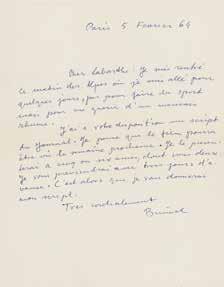 Paris 5 Fevrier 64
Cher Labarthe: Je suis rentré
ce matin des Alpes où je suis allé pour
quelques jours, pas pour faire du sport
mais pour me guerir d'un mauvais
rhume.
J'ai a votre disposition un script
du Journal. Je pense que le film pourra
être vu la semaine prochaine. Je le
a cinq ou six amis, dont vous deux.
Je vous previendrai avec trois jours d'a-
vance. C'est alors que je vous donnerai
mon script.
Tres cordialement
Buñuel